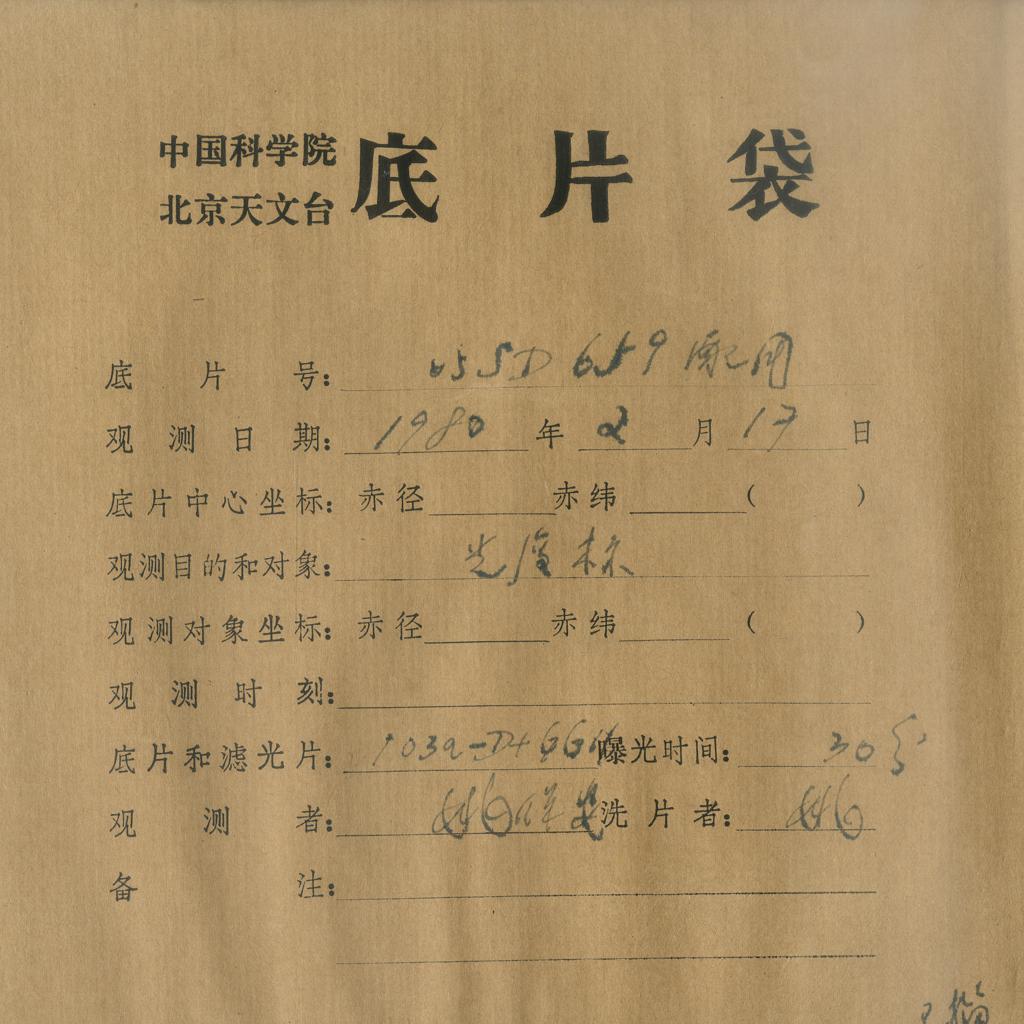 中国科学院
北京天文台
底片袋
底片号： 配用
观测日期：1980年2月17日
底片中心坐标：赤径 赤纬 （ ）
观测目的和对象：光度标
观测对象坐标：赤径 赤纬 （ ）
观测时刻：
底片和滤光片：103a-D+GG 曝光时间：30分
观测者： 洗片者：
备注：